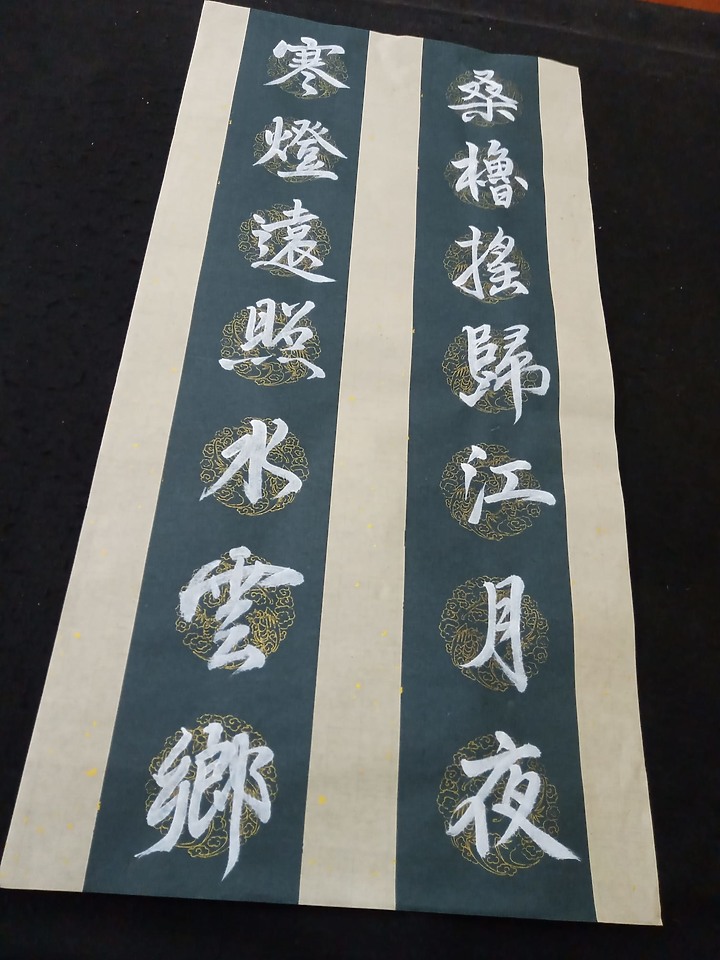 桑櫓搖歸江月夜
寒燈遠照水雲鄉